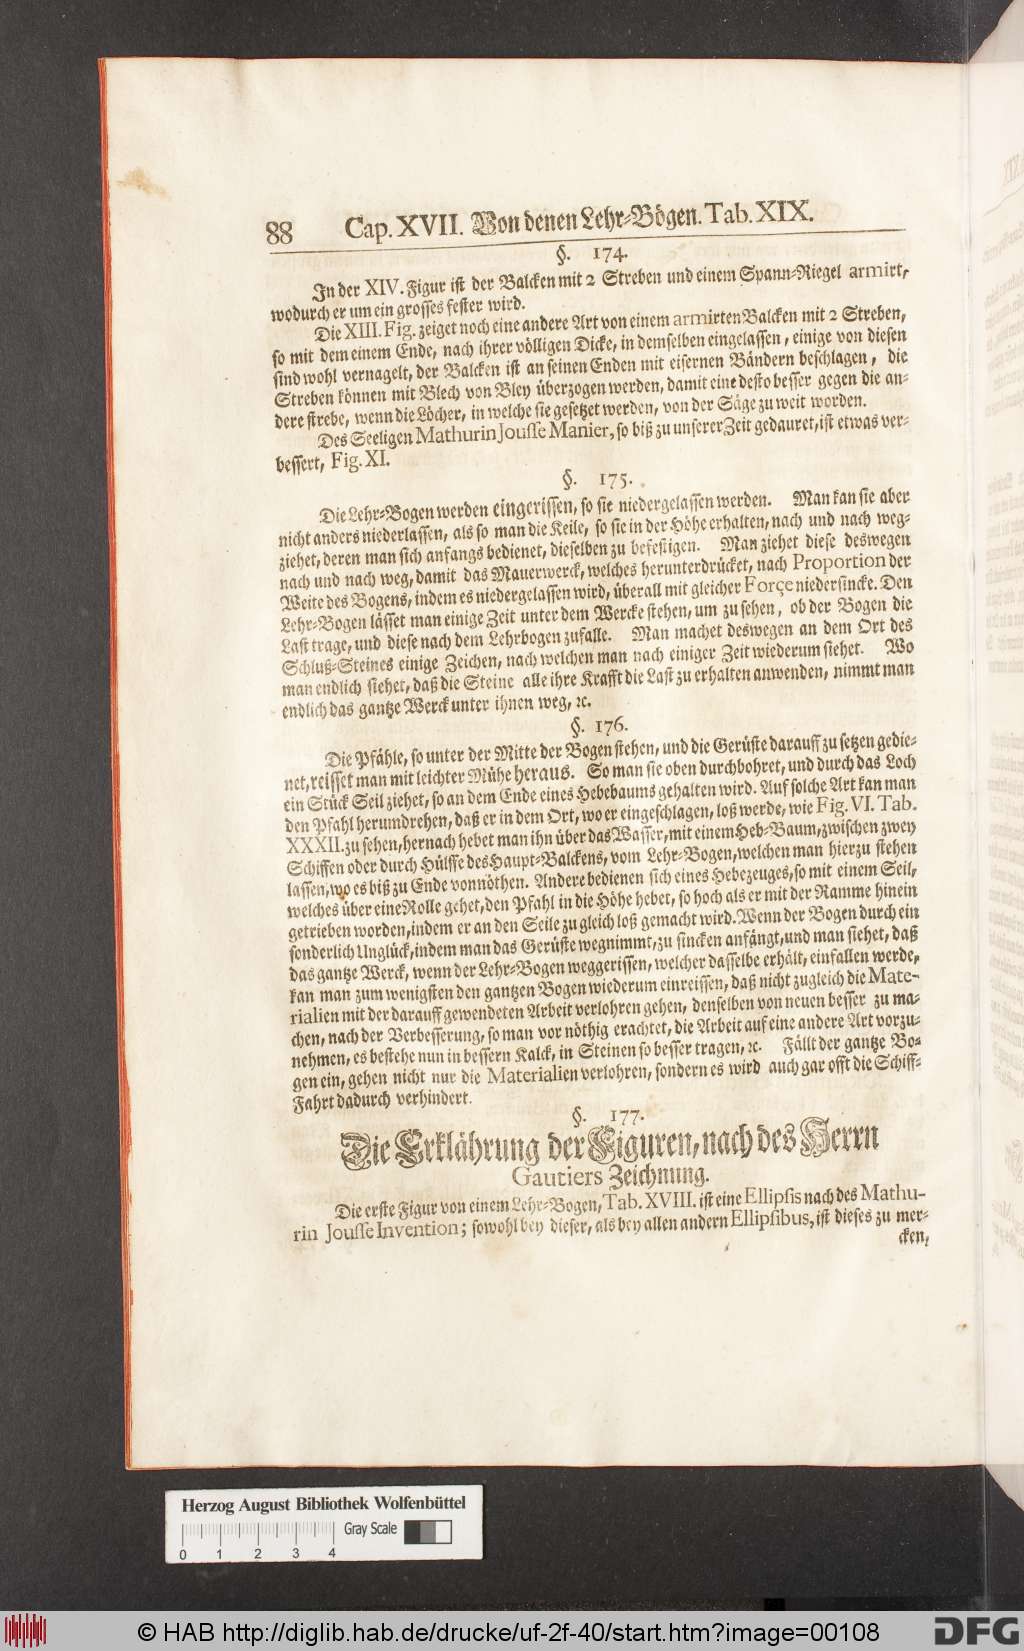 88 Cap. XVII. Von denen Lehr-Bögen. Tab. XIX.
§. 174.
In der XIV. Figur ist der Balcken mit 2 Streben und einem Spann-Riegel armirt,
wodurch er um ein grosses fester wird.
Die XIII. Fig. zeiget noch eine andere Art von einem armirten Balcken mit 2 Streben,
so mit dem einem Ende, nach ihrer völligen Dicke, in demselben eingelassen, einige von diesen
sind wohl vernagelt, der Balcken ist an seinen Enden mit eisernen Bändern beschlagen, die
Streben können mit Blech von Bley überzogen werden, damit eine desto besser gegen die an-
dere strebe, wenn die Löcher, in welche sie gesetzet werden, von der Säge zu weit worden.
Des Seeligen Mathurin Jousse Manier, so biß zu unserer Zeit gedauret, ist etwas ver-
bessert, Fig. XI.
§. 175.
Die Lehr-Bogen werden eingerissen, so sie niedergelassen werden. Man kan sie aber
nicht anders niederlassen, als so man die Keile, so sie in der Höhe erhalten, nach und nach weg-
ziehet, deren man sich anfangs bedienet, dieselben zu befestigen. Man ziehet diese deswegen
nach und nach weg, damit das Mauerwerck, welches herunterdrücket, nach Proportion der
Weite des Bogens, indem es niedergelassen wird, überall mit gleicher Forçe niedersincke. Den
Lehr-Bogen lässet man einige Zeit unter dem Wercke stehen, um zu sehen, ob der Bogen die
Last trage, und diese nach dem Lehrbogen zufalle. Man machet deswegen an dem Ort des
Schluß-Steines einige Zeichen, nach welchen man nach einiger Zeit wiederum siehet. Wo
man endlich siehet, daß die Steine alle ihre Krafft die Last zu erhalten anwenden, nimmt man
endlich das gantze Werck unter ihnen weg, ꝛc.
§. 176.
Die Pfähle, so unter der Mitte der Bogen stehen, und die Gerüste darauff zu setzen gedie-
net, reisset man mit leichter Mühe heraus. So man sie oben durchbohret, und durch das Loch
ein Stück Seil ziehet, so an dem Ende eines Hebebaums gehalten wird. Auf solche Art kan man
den Pfahl herumdrehen, daß er in dem Ort, wo er eingeschlagen, loß werde, wie Fig. VI. Tab.
XXXII. zu sehen, hernach hebet man ihn über das Wasser, mit einem Heb-Baum, zwischen zwey
Schiffen oder durch Hülffe des Haupt-Balckens, vom Lehr-Bogen, welchen man hierzu stehen
lassen, wo es biß zu Ende vonnöthen. Andere bedienen sich eines Hebezeuges, so mit einem Seil,
welches über eine Rolle gehet, den Pfahl in die Höhe hebet, so hoch als er mit der Ramme hinein
getrieben worden, indem er an den Seile zu gleich loß gemacht wird. Wenn der Bogen durch ein
sonderlich Unglück, indem man das Gerüste wegnimmt, zu sincken anfängt, und man siehet, daß
das gantze Werck, wenn der Lehr-Bogen weggerissen, welcher dasselbe erhält, einfallen werde,
kan man zum wenigsten den gantzen Bogen wiederum einreissen, daß nicht zugleich die Mate-
rialien mit der darauff gewendeten Arbeit verlohren gehen, denselben von neuen besser zu ma-
chen, nach der Verbesserung, so man vor nöthig erachtet, die Arbeit auf eine andere Art vorzu-
nehmen, es bestehe nun in bessern Kalck, in Steinen so besser tragen, ꝛc. Fällt der gantze Bo-
gen ein, gehen nicht nur die Materialien verlohren, sondern es wird auch gar offt die Schiff-
Fahrt dadurch verhindert.
§. 177.
Die Erklährung der Figuren, nach des Herrn
Gautiers Zeichnung.
Die erste Figur von einem Lehr-Bogen, Tab. XVIII. ist eine Ellipsis nach des Mathu-
rin Jousse Invention; sowohl bey dieser, als bey allen andern Ellipsibus, ist dieses zu mer-
cken,
Herzog August Bibliothek Wolfenbüttel
Gray Scale
0 1 2 3 4
© HAB http://diglib.hab.de/drucke/uf-2f-40/start.htm?image=00108
DFG